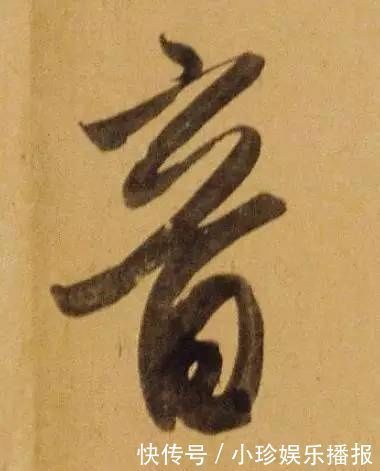 音
快传号/小珍娱乐播报